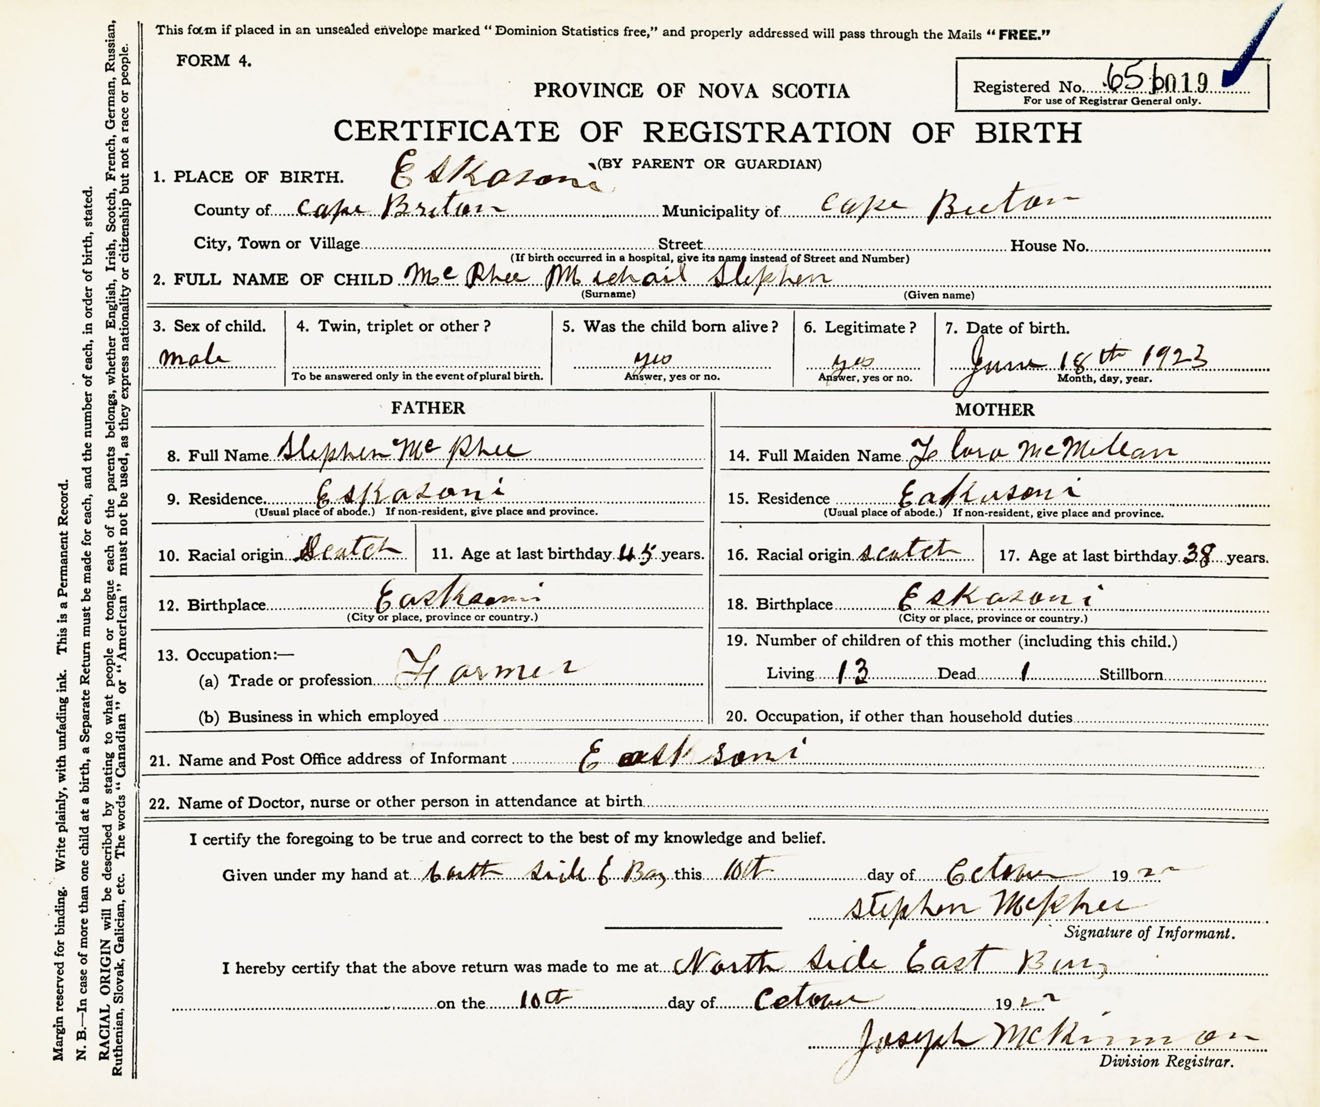 This form if placed in an unsealed envelope marked "Dominion Statistics free," and properly addressed will pass through the Mails "FREE."
FORM 4.
PROVINCE OF NOVA SCOTIA
Registered No. 65
For use of Registrar General only.
CERTIFICATE OF REGISTRATION OF BIRTH
(BY PARENT OR GUARDIAN)
1. PLACE OF BIRTH. Eskasoni
County of Cape Breton Municipality of Cape Breton
City, Town or Village Street House No.
(If birth occurred in a hospital, give its name instead of Street and Number)
2. FULL NAME OF CHILD McPhee Michail Stephen
(Surname) (Given name)
3. Sex of child. 4. Twin, triplet or other? 5. Was the child born alive? 6. Legitimate? 7. Date of birth.
male yes yes June 18th 1923
To be answered only in the event of plural birth. Answer, yes or no. Answer, yes or no. Month, day, year.
FATHER
8. Full Name Stephen McPhee
9. Residence Eskasoni
(Usual place of abode.) If non-resident, give place and province.
10. Racial origin Scotch 11. Age at last birthday 45 years.
12. Birthplace Easkasoni
(City or place, province or country.)
13. Occupation:—
(a) Trade or profession Farmer
(b) Business in which employed
MOTHER
14. Full Maiden Name Flora McMillan
15. Residence Easkasoni
(Usual place of abode.) If non-resident, give place and province.
16. Racial origin scotch 17. Age at last birthday 38 years.
18. Birthplace Eskasoni
(City or place, province or country.)
19. Number of children of this mother (including this child.)
Living 13 Dead 1 Stillborn
20. Occupation, if other than household duties
21. Name and Post Office address of Informant Easksoni
22. Name of Doctor, nurse or other person in attendance at birth
I certify the foregoing to be true and correct to the best of my knowledge and belief.
Given under my hand at North Side E Bay this 10th day of October 19
Stephen McPhee
Signature of Informant.
I hereby certify that the above return was made to me at North Side East Bay
on the 10th day of October 19
Joseph McKinnon
Division Registrar.
Margin reserved for binding. Write plainly, with unfading ink. This is a Permanent Record.
N. B.—In case of more than one child at a birth, a Separate Return must be made for each, and the number of each, in order of birth, stated.
RACIAL ORIGIN will be described by stating to what people or tongue each of the parents belongs, whether English, Irish, Scotch, French, German, Russian,
Ruthenian, Slovak, Galician, etc. The words "Canadian" or "American" must not be used, as they express nationality or citizenship but not a race or people.